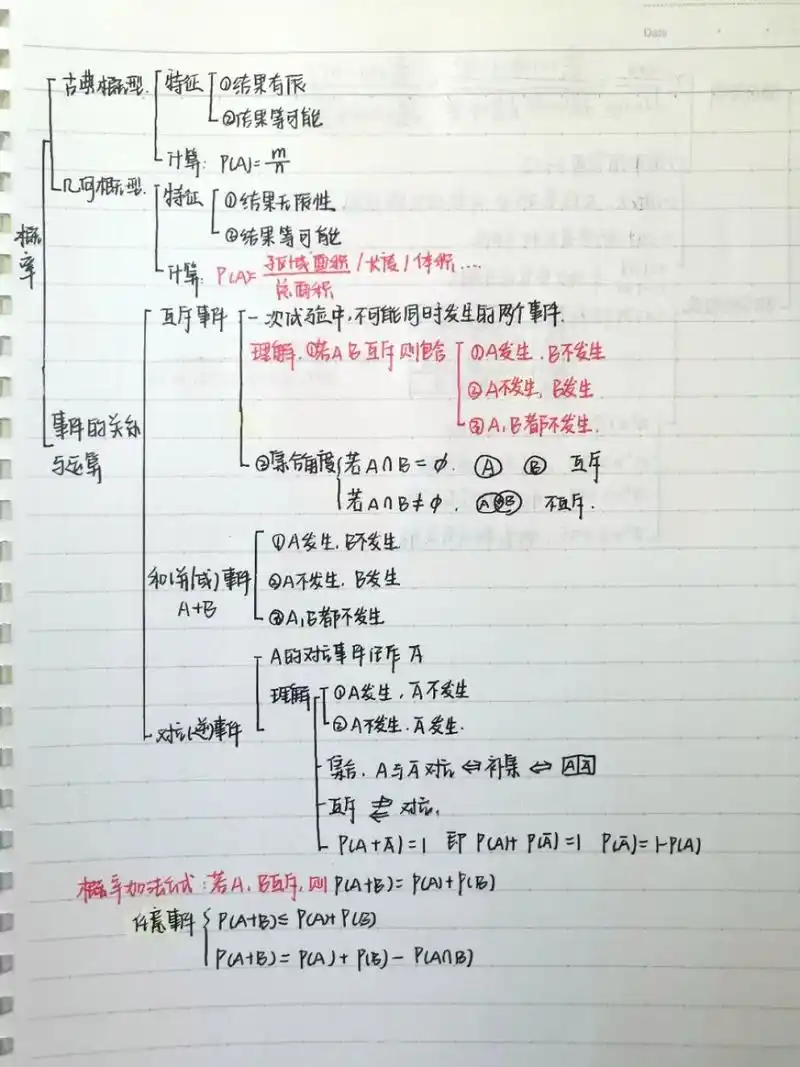 Date
概率
古典概型
特征
①结果有限
②结果等可能
计算: P(A)= m/n
几何概型
特征
①结果无限性
②结果等可能
计算: P(A)= 区域面积/长度/体积… / 总面积
事件的关系与运算
互斥事件
一次试验中,不可能同时发生的两个事件.
理解.①若A B互斥则包含
①A发生.B不发生
②A不发生,B发生
③A,B都不发生.
②集合角度
若A∩B=∅. A B 互斥
若A∩B≠∅. A B 不互斥.
和(并/或)事件
A+B
①A发生.B不发生
②A不发生.B发生
③A,B都不发生
对立(逆)事件
A的对立事件记作Ā
理解
①A发生,Ā不发生
②A不发生.Ā发生.
集合,A与Ā对立⇔补集⇔ A Ā
互斥 ⇄ 对立,
P(A+Ā)=1 即 P(A)+P(Ā)=1 P(Ā)=1-P(A)
概率加法公式:若A,B互斥,则P(A+B)=P(A)+P(B)
任意事件
P(A+B)≤P(A)+P(B)
P(A+B)=P(A)+P(B)-P(A∩B)